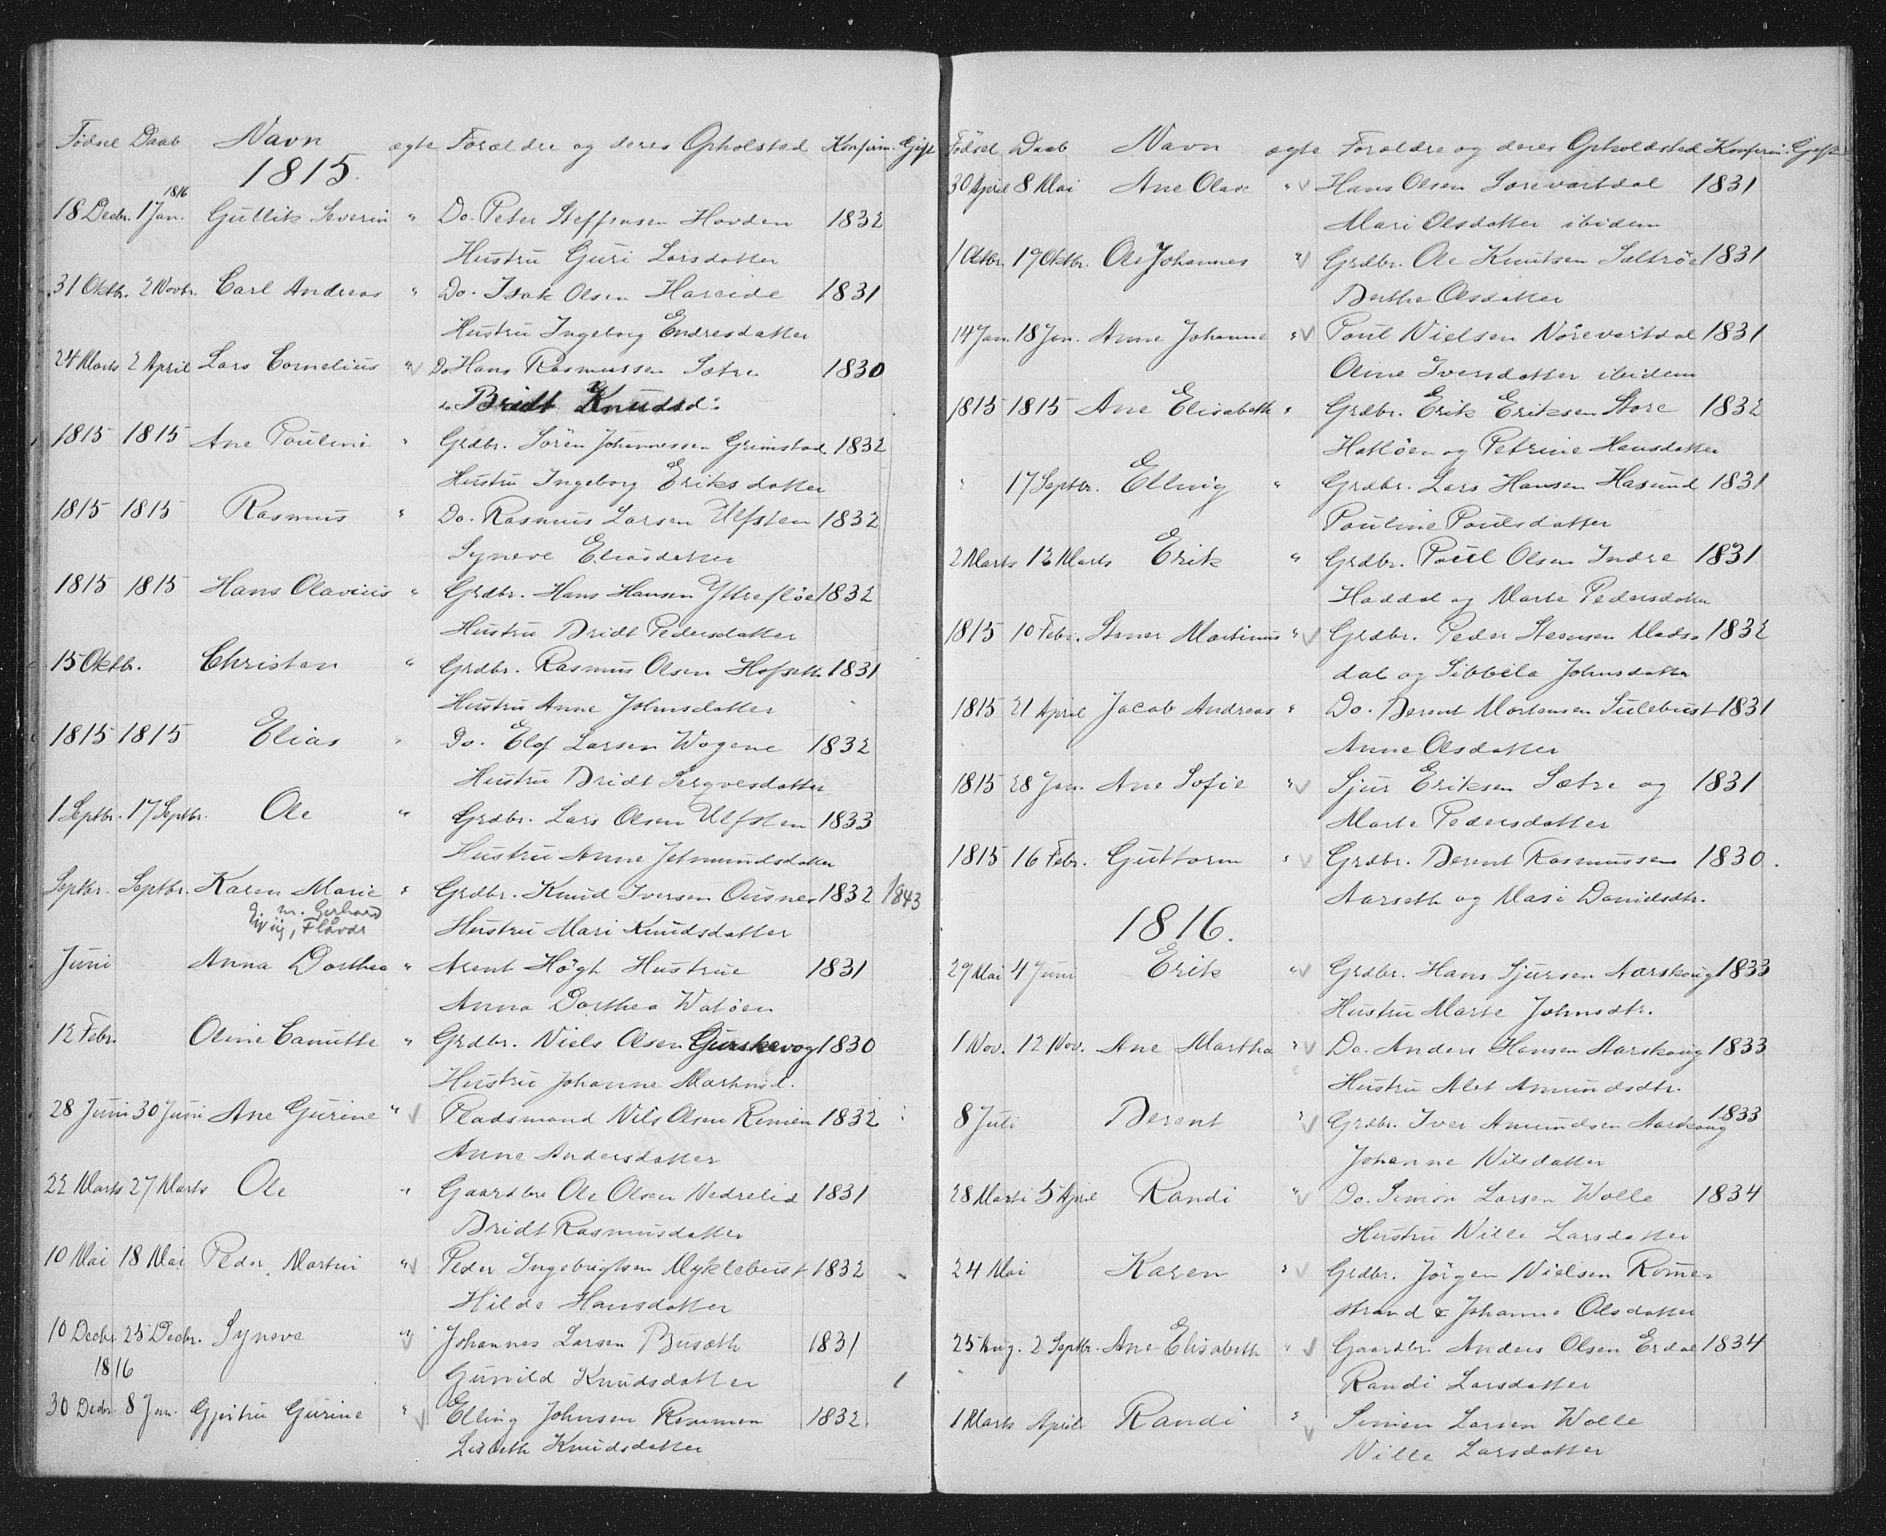 Fødsel Daab Navn ægte Forældre og deres Opholsted Konfirm. Gift
1815.
18 Decbr. 1 Jan. 1816 Gullik Severin " Do. Peter Steffensen Hovden 1832
Hustru Guri Larsdatter
31 Oktbr. 2 Novbr. Carl Andreas " Do. Isak Olsen Hareide 1831
Hustru Ingeborg Endresdatter
24 Marts 2 April Lars Cornelius " v Do Hans Rasmussen Sætre 1830
Bridt Knudsd:
1815 1815 Ane Pouline " Grdbr. Søren Johannessen Grimstad 1832
Hustru Ingeborg Eriksdatter
1815 1815 Rasmus " Do. Rasmus Larsen Ulfsten 1832
Syneve Eliasdatter
1815 1815 Hans Olavius " Grdbr. Hans Hansen Yttrefløe 1832
Hustru Bridt Pedersdatter
15 Oktb. Christen " Grdbr. Rasmus Olsen Hofset 1831
Hustru Anne Johnsdatter
1815 1815 Elias " Do. Elof Larsen Wogene 1832
Hustru Bridt
1 Septbr. 17 Septbr. Ole " Grdbr. Lars Olsen Ulfsten 1833
Hustru Anne Jetmundsdatter
Septbr. Septbr. Karen Marie " Grdbr. Knud Iversen Ousnes 1832 1843
G. m. Gerhard
Flåvær Hustru Mari Knudsdatter
Juni Anna Dorthea " Arent Høgh Hustrue 1831
Anna Dorthea Watøen
12 Febr. Oline Camitte " Grdbr. Niels Olsen Gurskevog 1830
Hustru Johanne Martinsd.
28 Juni 30 Juni Ane Gurine " v Pladsmand Nils Olsen Remen 1832
Anne Andersdatter
22 Marts 27 Marts Ole " Gaardbr Ole Olsen Nedrelid 1831
Bridt Rasmusdatter
10 Mai 18 Mai Peder Martin " v Peder Ingebrigtsen Myklebust 1832
Hilde Hansdatter
10 Decbr. 25 Decbr. Syneve " v Johannes Larsen Busæth 1831
1816 Gunild Knudsdatter
30 Decbr 8 Jan. Gjertru Gurine " v Elling Johnsen Remmen 1832
Lisbeth Knudsdatter
Fødsel Daab Navn ægte Forældre og deres Opholdsted Konfirm. Gift
30 April 8 Mai Ane Olave " v Hans Olsen Sørevartdal 1831
Mari Olsdatter ibidem
1 Octbr. 19 Oktbr. Ole Johannes " v Grdbr. Ole Knutsen Saltrøe 1831
Berthe Olsdatter
14 Jan. 18 Jan. Anne Johanne " v Poul Nielsen Nørevartdal 1831
Oline Iversdatter ibidem
1815 1815 Ane Elisabeth " Grdbr. Erik Eriksen Store 1832
Hatløen og Petrine Hansdatter
" 17 Septbr. Elling " Grdbr. Lars Hansen Hasund 1831
Pouline Poulsdatter
2 Marts 12 Marts Erik " Grdbr. Poul Olsen Indre 1831
Haddal og Marte Pedersdatter
1815 10 Febr. Stener Martinus " v Grdbr. Peder Steensen Mads= 1832
dal og Sibbela Johnsdatter
1815 21 April Jacob Andreas " Do. Berent Mortensen Sulebust 1831
Anne Olsdatter
1815 28 Jan. Ane Sofie " v Sjur Eriksen Sætre og 1831
Marte Pedersdatter
1815 16 Febr. Guttorm " v Grdbr. Berent Rasmussen 1830.
Aarseth og Mari Danidsdtr.
1816.
29 Mai 4 Juni Erik " v Grdbr. Hans Sjursen Aarskoug 1833
Hustru Marte Johnsdtr.
1 Nov. 12 Nov. Ane Martha " v Do. Anders Hansen Aarskoug 1833
Hustru Alet Amundsdtr.
8 Juli Berent " v Grdbr. Iver Amundsen Aarskoug 1833
Johanne Nilsdatter
28 Marti 5 April Randi " v Do. Simon Larsen Wolle 1834
Hustru Nille Larsdatter
24 Mai Karen " v Grdbr. Jørgen Nielsen Rome=
strand & Johanne Olsdatter
25 Aug. 2 Septbr. Ane Elisabeth " v Gaardbr. Anders Olsen Erdal 1834
Randi Larsdatter
1 Marts April Randi " v Simen Larsen Wolle
Nille Larsdatter